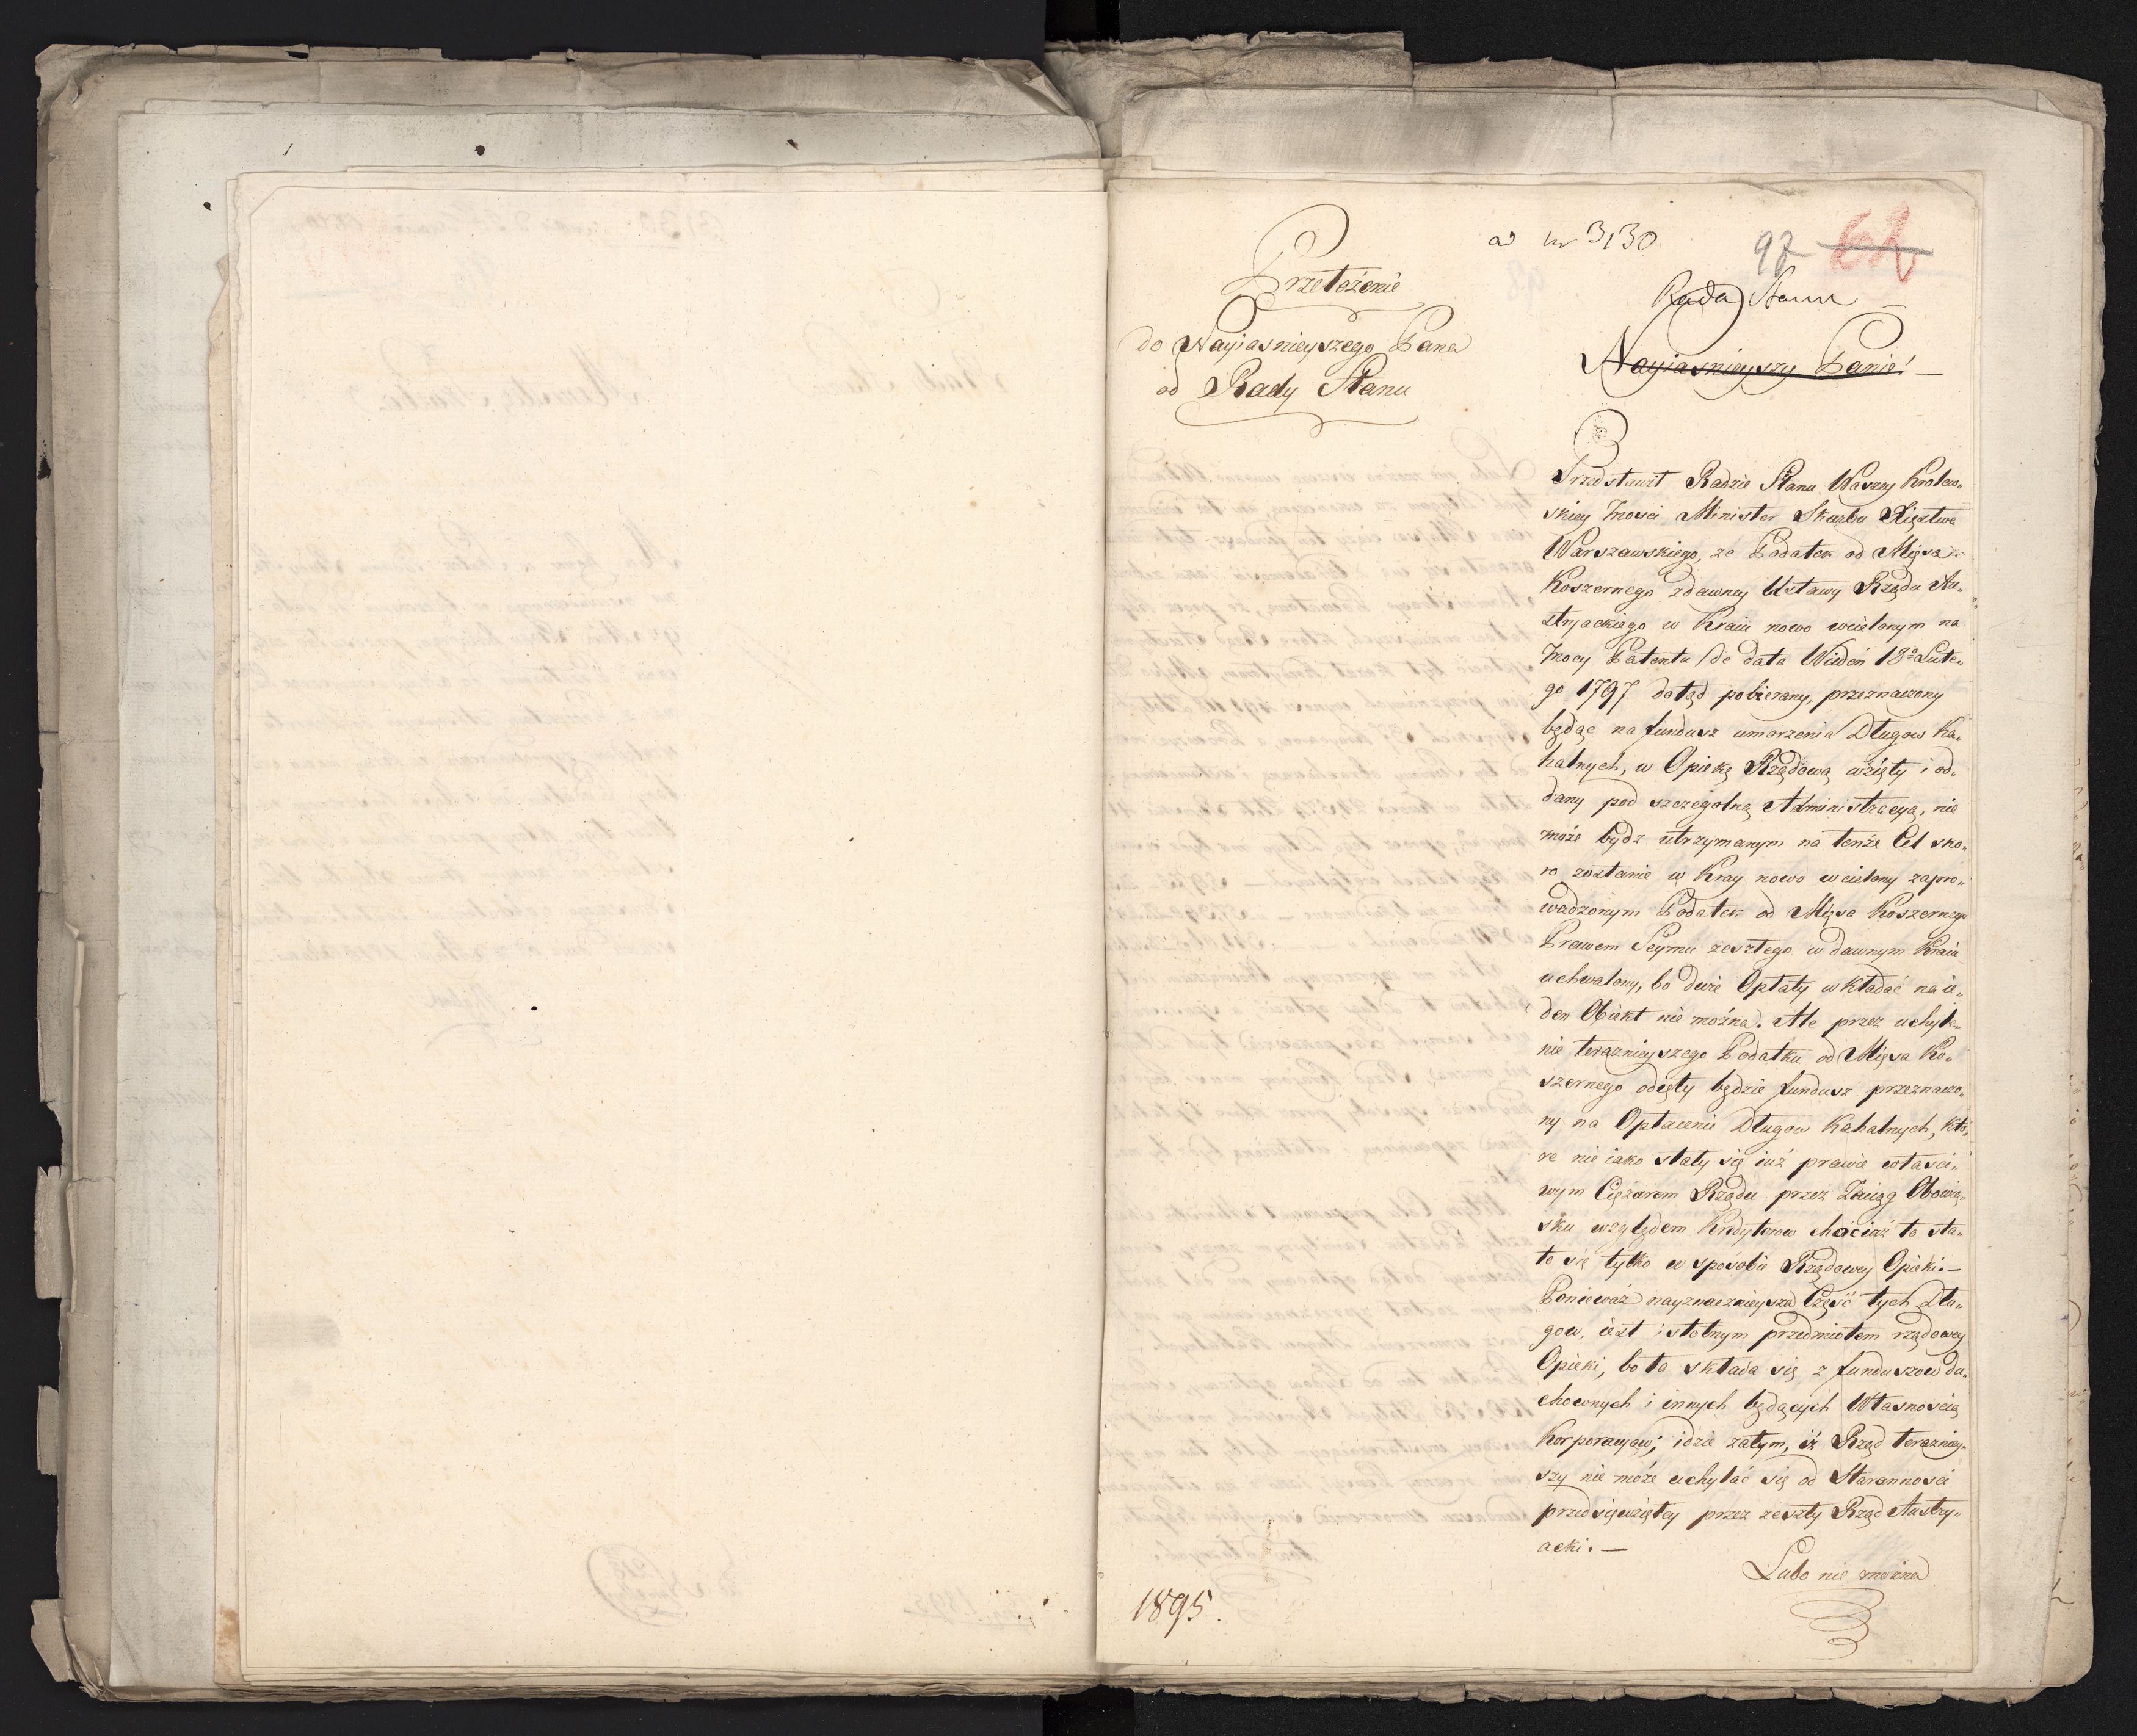 ad nr 3130
97 62
Przełożenie
do Nayiasnieyszego Pana
od Rady Stanu
Rada Stanu
Nayiasnieyszy Panie! —
Przedstawił Radzie Stanu Waszey Krolew„
skiey Mosci Minister Skarbu Xięztwa
Warszawskiego, ze Podatek od Mięsa
Koszernego zdawney Ustawy Rządu Au„
stryackiego w Kraiu nowo wcielonym na
mocy Patentu de data Wiedeń 18º Lute„
go 1797 dotąd pobierany, przeznaczony
będąc na fundusz umorzenia Długow Ka„
halnych, w Opiekę Rządową wzięty i od„
dany pod szczegolną Administracyą, nie
może bydz utrzymanym na tenże Cel sko„
ro zostanie w Kray nowo wcielony zapro„
wadzonym Podatek od Mięsa Koszernego
Prawem Seymu zeszłego w dawnym Kraiu
uchwalony, bo dwie Opłaty wkładać na ie„
den Obiekt nie można. Ale przez uchyle„
nie teraznieyszego Podatku od Mięsa Ko„
szernego odięty będzie fundusz przeznaczo„
ny na Opłacenie Długow Kahalnych, któ„
re nie iako stały się iuż prawie własci„
wym Ciężarem Rządu przez Zaciąg Obowią„
sku względem Kredytorow chociaż to sta„
ło się tylko w sposobie Rządowey Opieki. —
Ponieważ nayznacznieysza Część tych Dłu„
gow, iest istotnym przedmiotem rządowey
Opieki, bo ta składa się z funduszow du„
chownych i innych będących Własnością
Korporacyow; idzie zatym, iż Rząd teraźniey„
szy nie może uchylać się od Starannosci
przedsięwziętey przez zeszły Rząd Austry„
acki. —
Lubo nie można
1895.